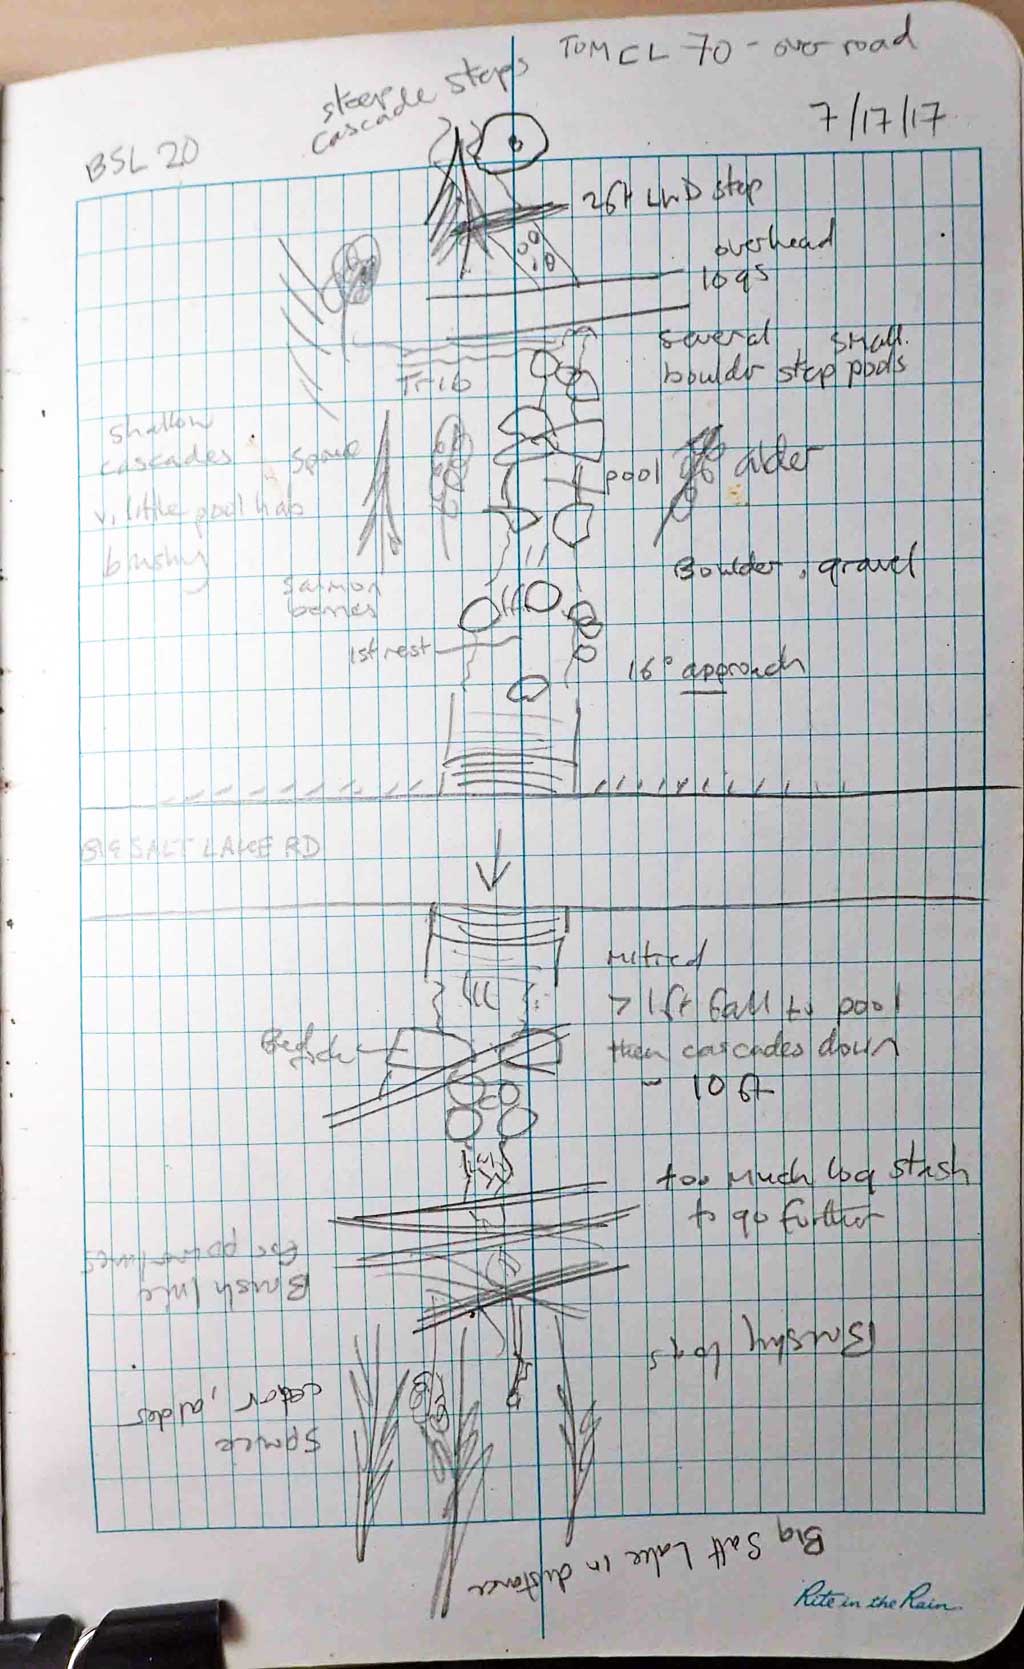 TOM CL 70 - over road
steep
cascade steps
7/17/17
BSL 20
2ft LWD step
overhead
logs
several small
boulder step pools
Trib
shallow
cascades
v. little pool hab
brushy
spruce
pool
alder
Boulder, gravel
salmon
berries
1st rest
16° approach
BIG SALT LAKE RD
Mitred
> 1ft fall to pool
then cascades down
~ 10 ft
Bedrock
too much log stash
to go further
Brush line
for powerlines
Brushy logs
Spruce
cedar, alder
Big Salt Lake in distance
Rite in the Rain